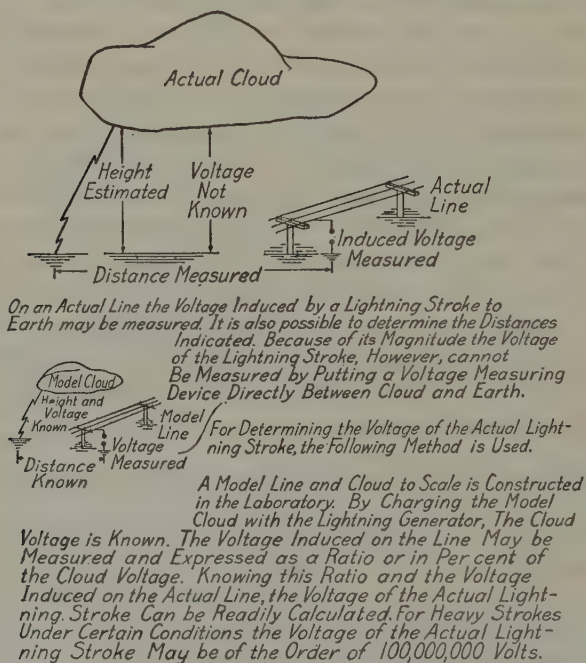 Actual Cloud
Height
Estimated
Voltage
Not
Known
Actual
Line
Induced Voltage
Measured
Distance Measured
On an Actual Line the Voltage Induced by a Lightning Stroke to
Earth may be measured. It is also possible to determine the Distances
Indicated. Because of its Magnitude the Voltage
of the Lightning Stroke, However, cannot
Be Measured by Putting a Voltage Measuring
Device Directly Between Cloud and Earth.
Model Cloud
Height and
Voltage
Known
Model
Line
Voltage
Measured
Distance
Known
For Determining the Voltage of the Actual Light-
ning Stroke, the Following Method is Used.
A Model Line and Cloud to Scale is Constructed
in the Laboratory. By Charging the Model
Cloud with the Lightning Generator, The Cloud
Voltage is Known. The Voltage Induced on the Line May be
Measured and Expressed as a Ratio or in Per cent of
the Cloud Voltage. Knowing this Ratio and the Voltage
Induced on the Actual Line, the Voltage of the Actual Light-
ning. Stroke Can be Readily Calculated. For Heavy Strokes
Under Certain Conditions the Voltage of the Actual Light-
ning Stroke May be of the Order of 100,000,000 Volts.